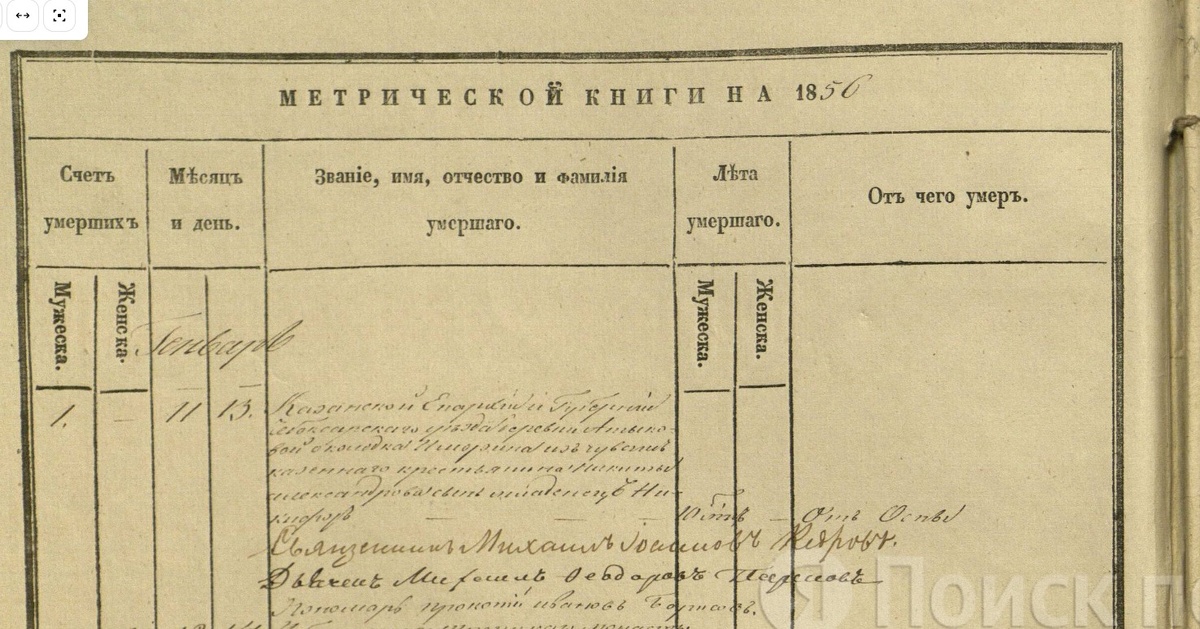 МЕТРИЧЕСКОЙ КНИГИ НА 1856
Счетъ умершихъ
Мѣсяцъ и день.
Званіе, имя, отчество и фамилія умершаго.
Лѣта умершаго.
Отъ чего умер.
Мужеска.
Женска.
Мужеска.
Женска.
Генварь
1. — 11 13. Казанской Епархіи и Губерніи
Чебоксарскаго уѣзда деревни Атыко-
вой околодка изъ чувашъ
казеннаго крестьянина Никиты
Александрова сынъ младенецъ Ни-
кифоръ — — — — Отъ Оспы
Священникъ Михаилъ Іоанновъ
Дьячекъ Михаилъ Ѳеодоровъ
Пономарь Прокопій Ивановъ
Поиск п